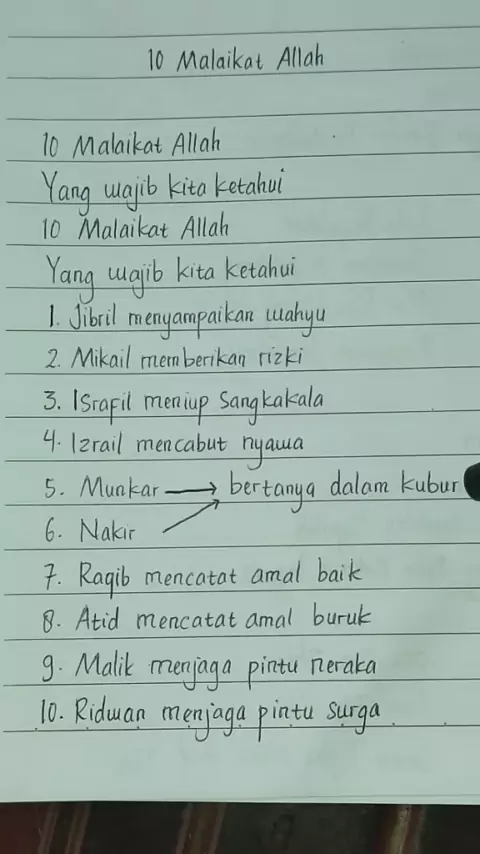 10 Malaikat Allah
10 Malaikat Allah
Yang wajib kita ketahui
10 Malaikat Allah
Yang wajib kita ketahui
1. Jibril menyampaikan wahyu
2. Mikail memberikan rizki
3. Israfil meniup Sangkakala
4. Izrail mencabut nyawa
5. Munkar → bertanya dalam kubur
6. Nakir
7. Raqib mencatat amal baik
8. Atid mencatat amal buruk
9. Malik menjaga pintu neraka
10. Ridwan menjaga pintu surga